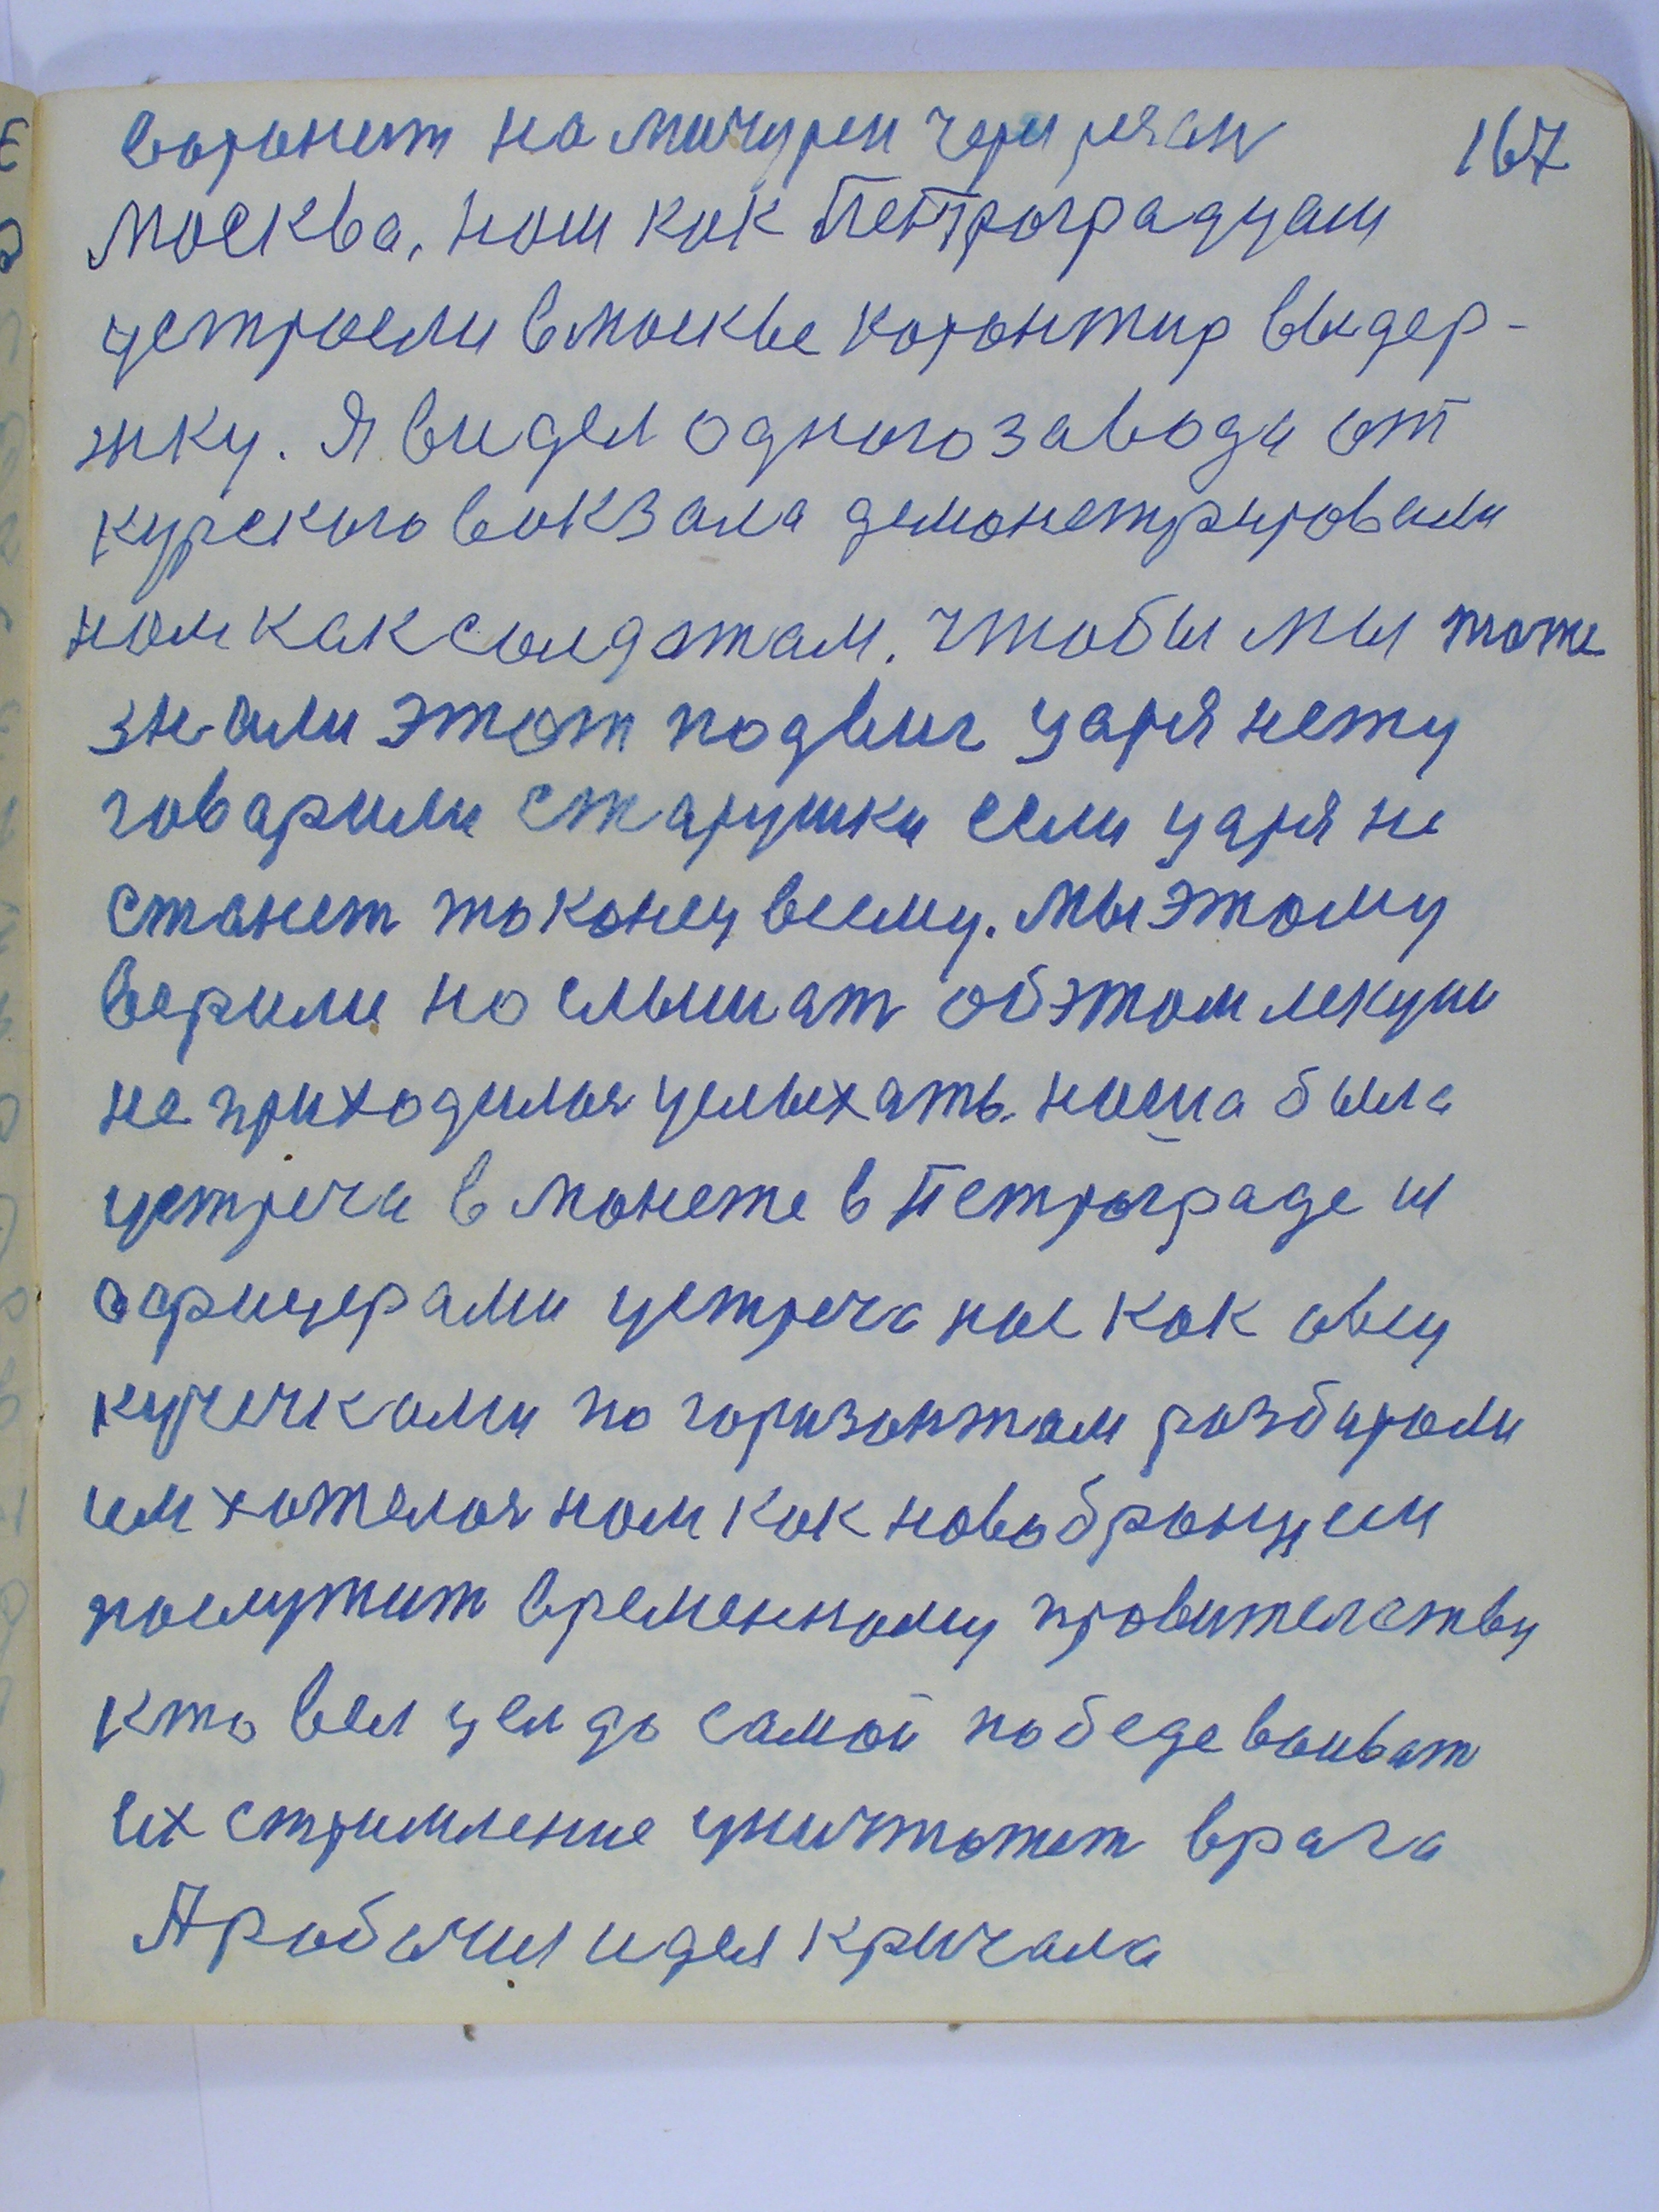 воронеж на мичурен чери рязан
167
Москва, нам как Петроградцам
устроели в москве корантир выдер-
жку. Я видел одного завода от
курского вокзала демонстрировали
нам как солдатам. чтобы мы тоже
знали этот подвиг царя нету
говарили старушки если царя не
станет то конец всему. Мы этому
верили но слышат об этом лекции
не приходилося услыхать. наша была
устреча в Монеже в Петрограде и
офицерами устреча нас как овец
кучечками по горизонтам разбирали
им хотелося нам как новобранцем
послужит временному правителству
кто вел цел до самой победе воиват
их стримление уничтожет врага
А рабочия идея кричала